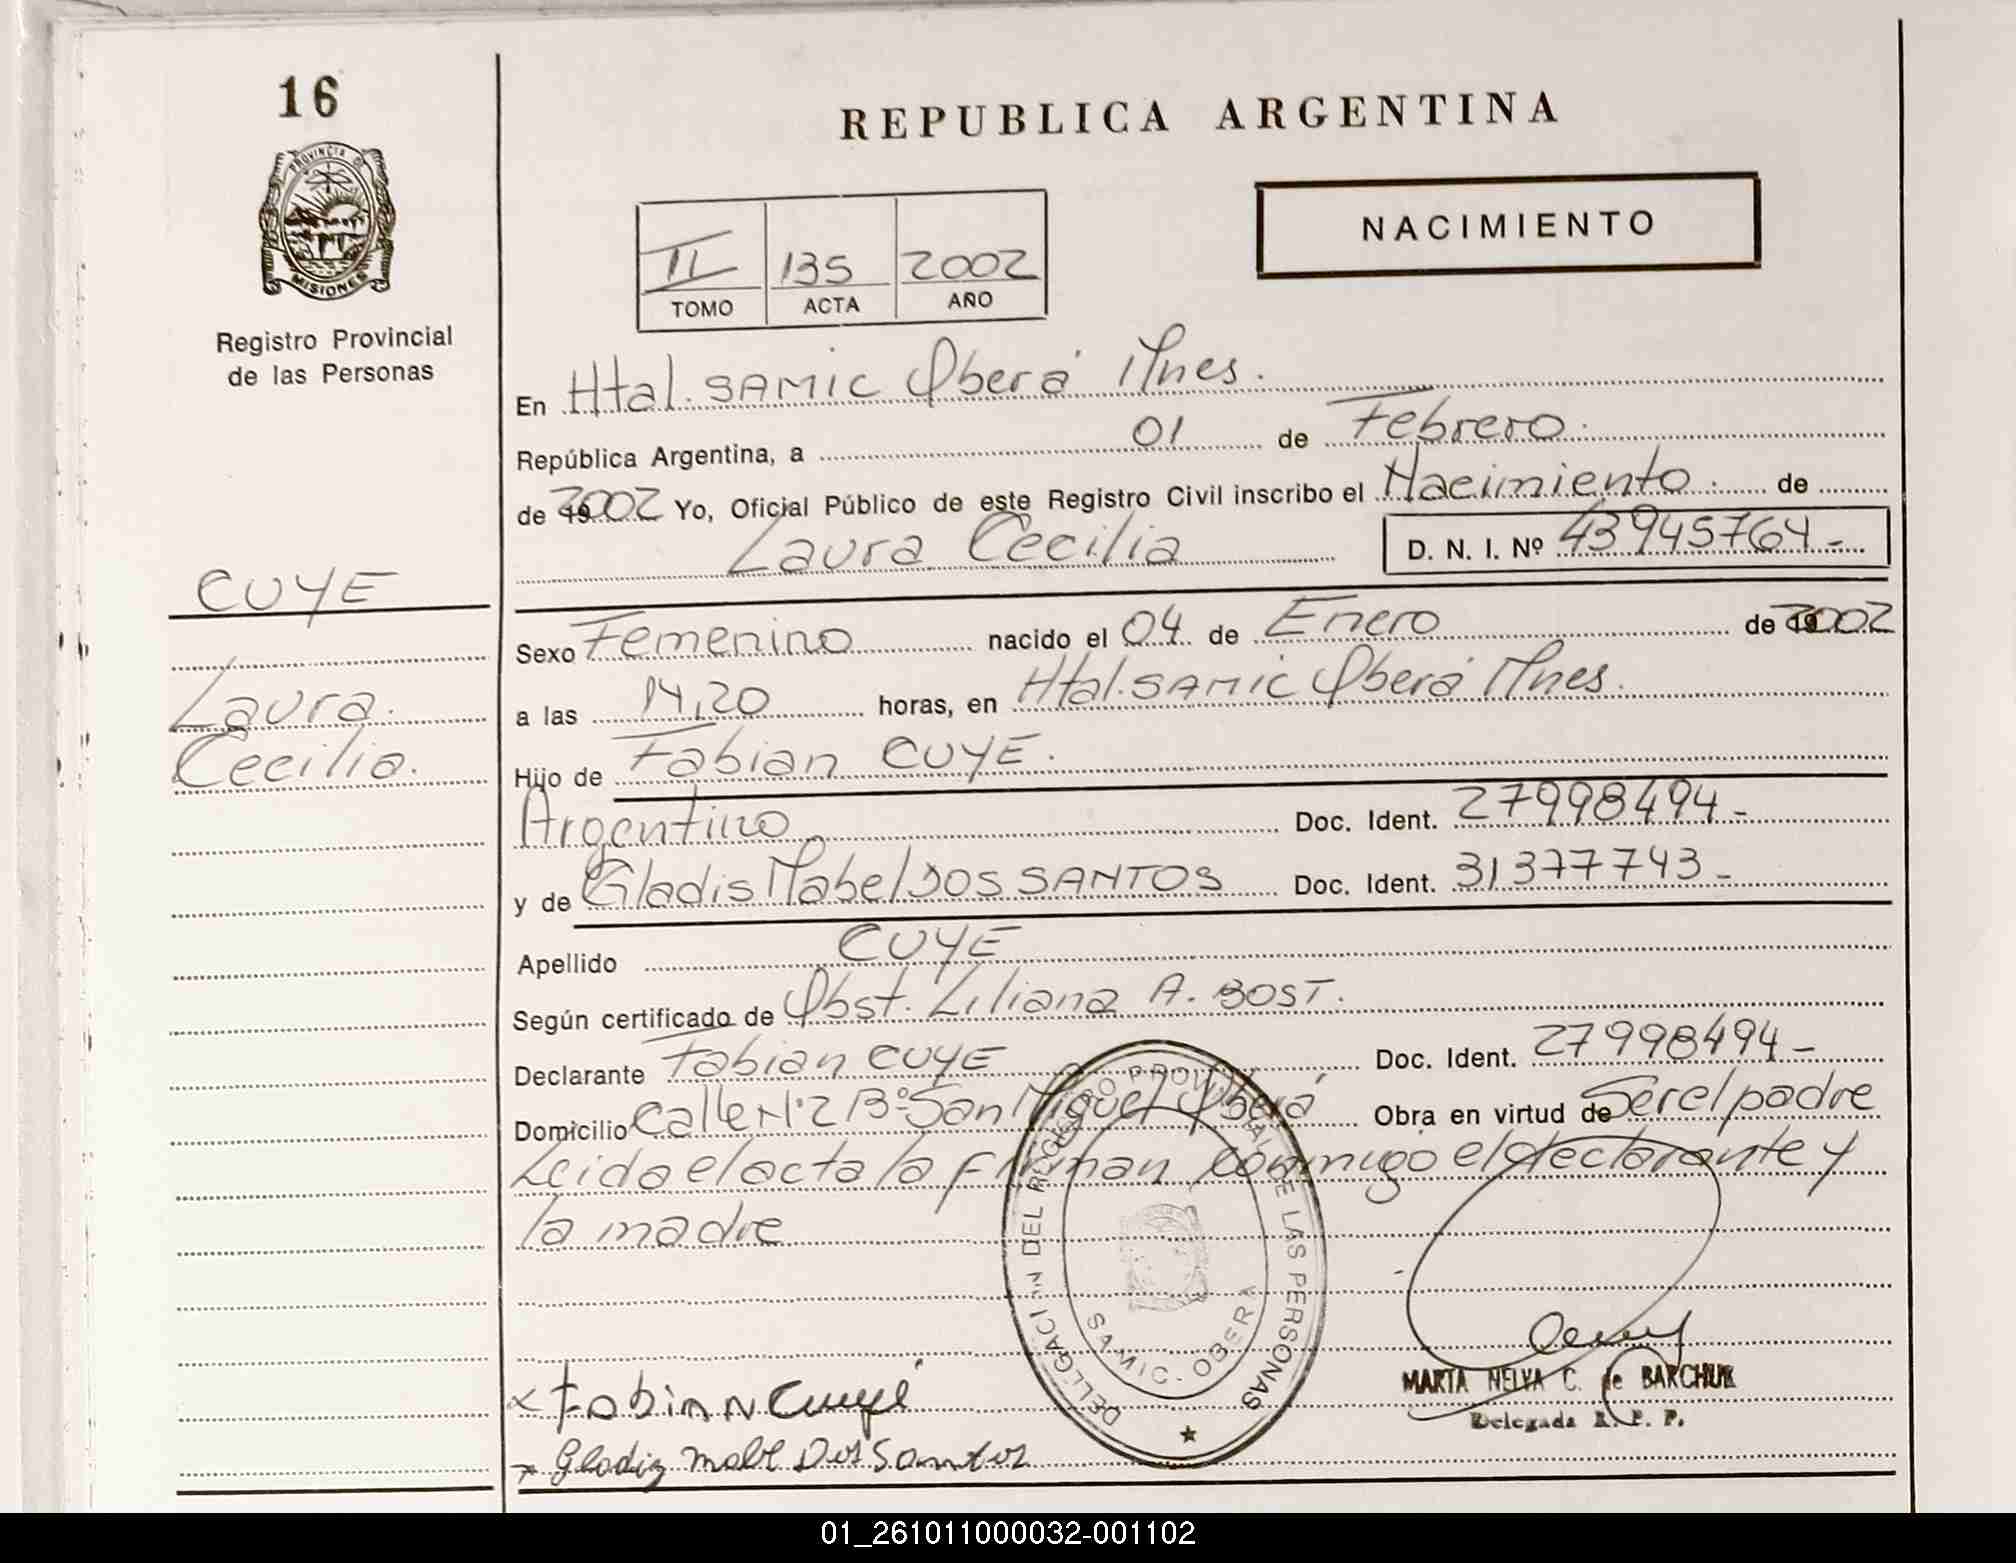 16
PROVINCIA DE
MISIONES
Registro Provincial
de las Personas
REPUBLICA ARGENTINA
NACIMIENTO
II 135 2002
TOMO ACTA AÑO
En Htal. SAMIC Oberá Mnes.
República Argentina, a 01 de Febrero.
de 2002 Yo, Oficial Público de este Registro Civil inscribo el Nacimiento. de
Laura Cecilia D. N. I. Nº 43945764-
CUYE
Laura
Cecilia.
Sexo Femenino nacido el 04 de Enero de 2002
a las 14,20 horas, en Htal. SAMIC Oberá Mnes.
Hijo de Fabian CUYE.
Argentino Doc. Ident. 27998494-
y de Gladis Mabel DOS SANTOS Doc. Ident. 31377743-
Apellido CUYE
Según certificado de Obst. Liliana A. BOST.
Declarante Fabian CUYE Doc. Ident. 27998494-
Domicilio Calle Nº2 Bº San Miguel Oberá Obra en virtud de Ser el padre
Leida el acta la firman conmigo el declarante y
la madre
DELEGACION DEL REGISTRO PROVINCIAL DE LAS PERSONAS
SAMIC. OBERA
Fabian Cuyé
Gladiz Mabl Dos Santos
MARTA NELVA C. de BARCHUK
Delegada R. P. P.
01_261011000032-001102